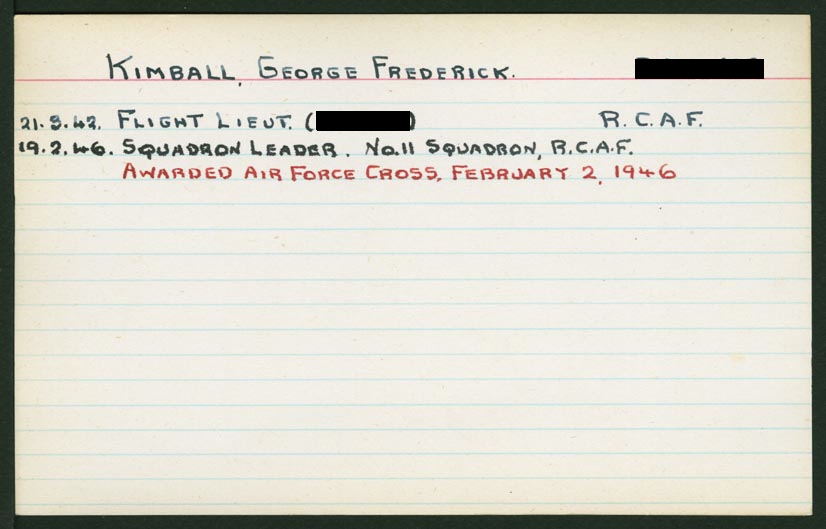 KIMBALL, GEORGE FREDERICK.
21.3.42. FLIGHT LIEUT. ( ) R.C.A.F.
19.2.46. SQUADRON LEADER. No.11 SQUADRON, R.C.A.F.
AWARDED AIR FORCE CROSS, FEBRUARY 2, 1946